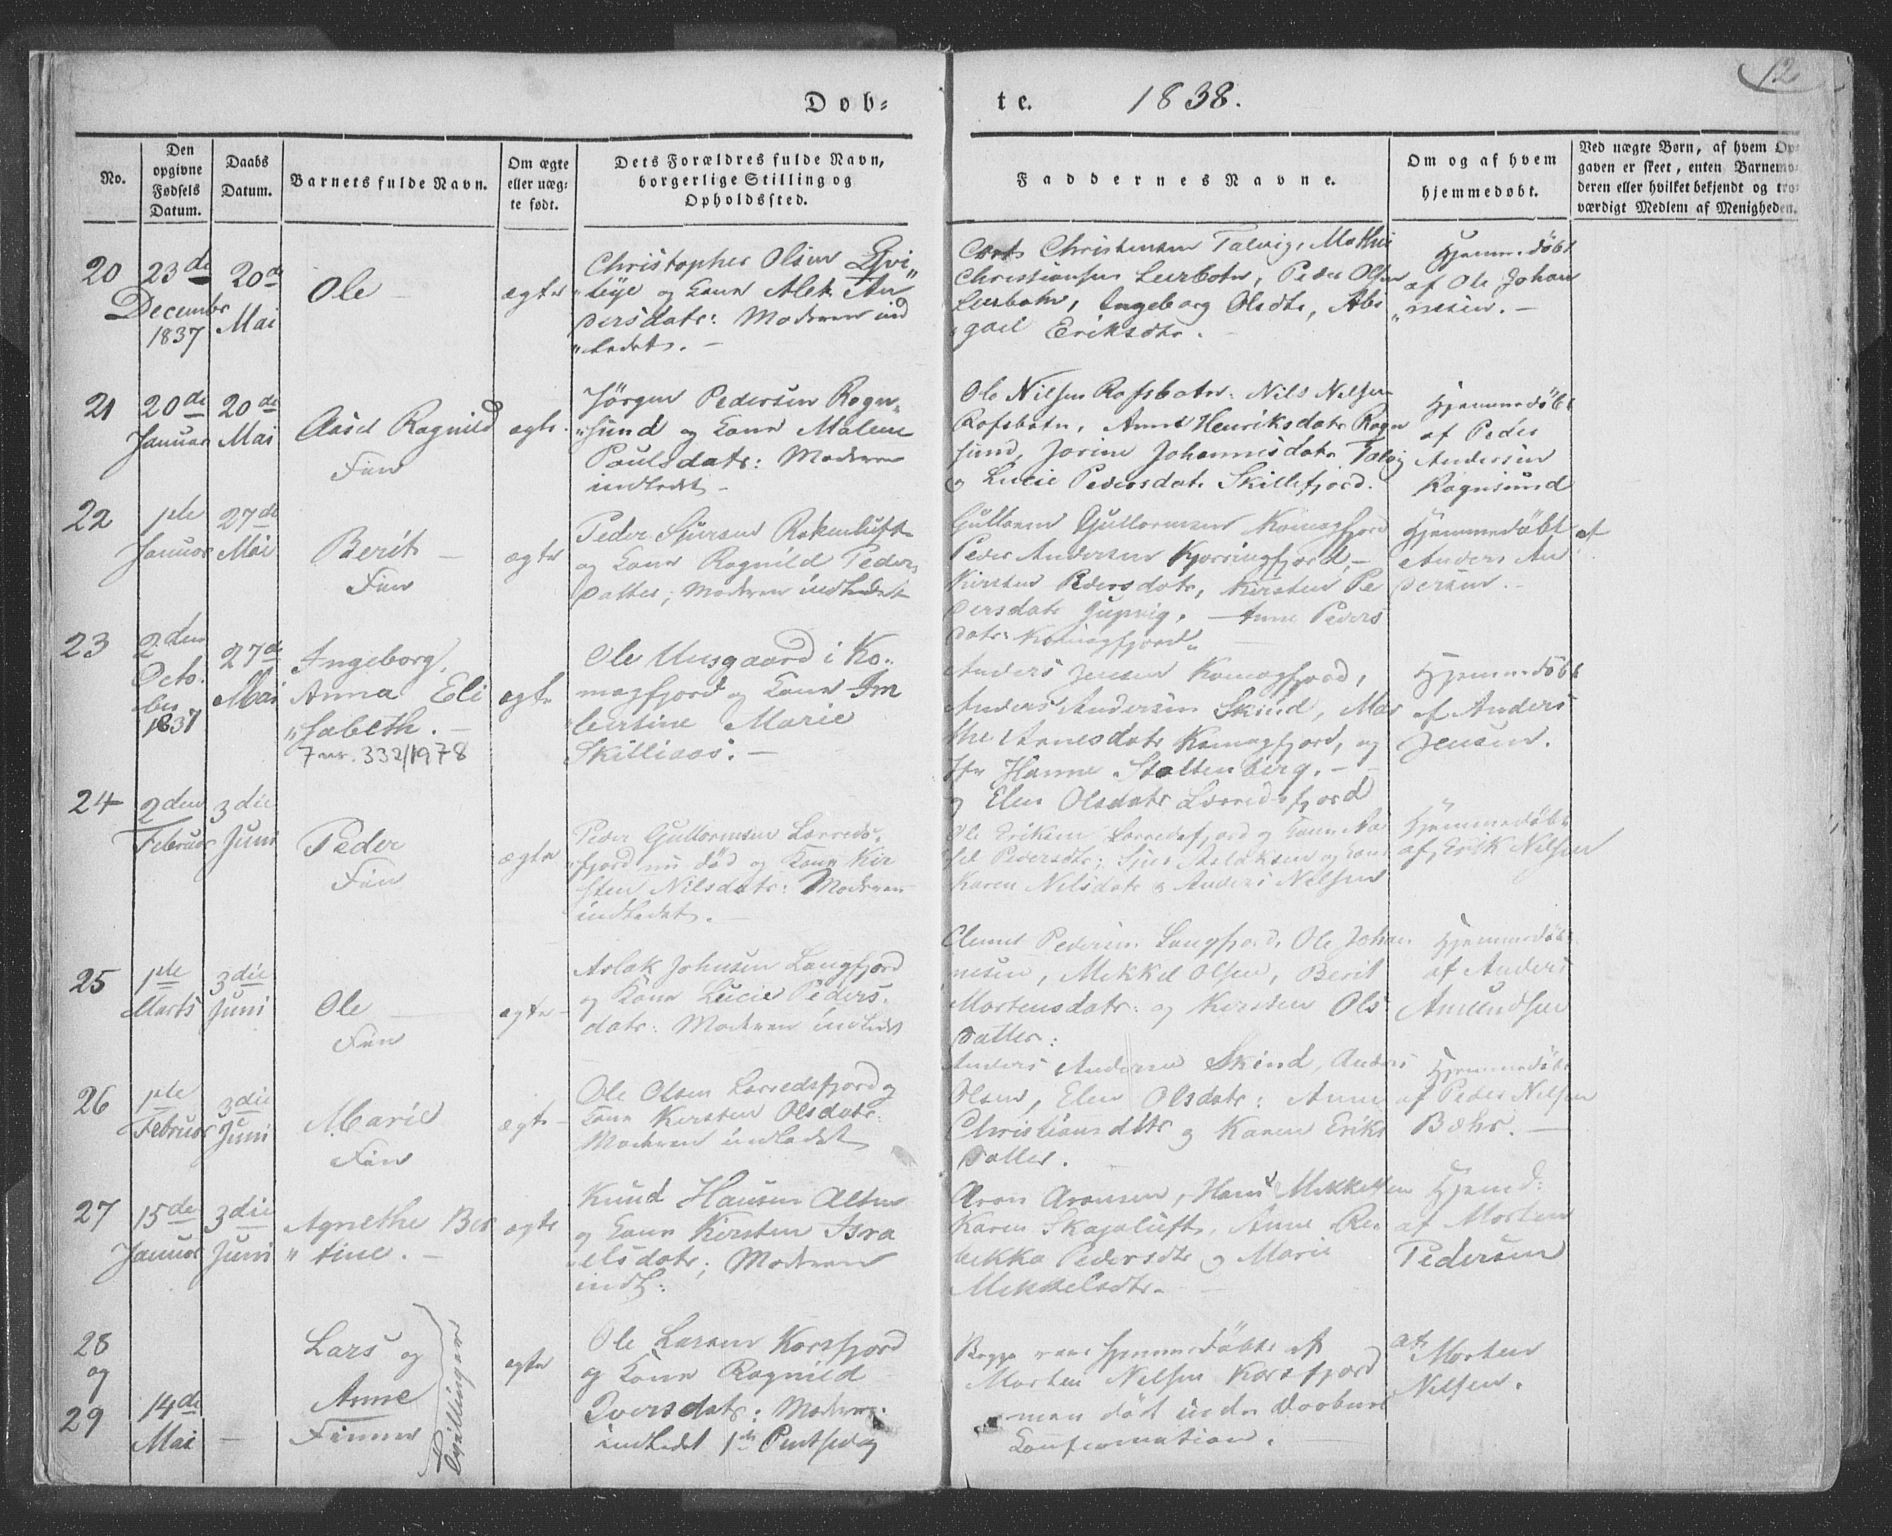 12
Dob-
te.
1838.
No.
Den opgivne Fødsels Datum.
Daabs Datum.
Barnets fulde Navn.
Om ægte eller uæg- te født.
Dets Forældres fulde Navn, borgerlige Stilling og Opholdssted.
Faddernes Navne.
Om og af hvem hjemmedøbt.
Ved uægte Børn, af hvem Op-
gaven er skeet, enten Barnemo-
deren eller hvilket bekjendt og tro-
værdigt Medlem af Menigheden.
20
23de
December
1837
20de
Mai
Ole
ægte
Christopher Olsen
og Kone
dersdatr: Moderen ind
ledet.
Christensen Talvig, Mathis
Christiansen Leerbotn, Peder Olsen
Leerbotn, Ingeborg Olsdtr, Abi
gael Eriksdtr.
Hjemmedøbt
af Ole Johan
nesen.
21
20de
Januar
20de
Mai
Aasel Ragnild
Fin
ægte.
Jørgen Pedersen Rogn
sund og Kone Malene
Paulsdatr: Moderen
indledet
Ole Nilsen Rafsbotn. Nils Nilsen
Rafsbotn, Anne Henriksdatr Rogn
sund, Jorine Johannisdatr Talvig
og Lucie Pedersdatr Skillefjord.
Hjemmedøbt
af Peder
Andersen
Rognsund
22
1ste
Januar
27de
Mai
Berit
Fin
ægte
Peder Sjursen
og Kone Ragnild Peders
datter; Moderen indledet
Guttorm Guttormsen Komagfjord
Peder Andersen
Kirsten Pedersdatr, Kirsten Pe
dersdatr Anne Peders
datr Komagfjord
Hjemmedøbt af
Anders An
dersen.
23
2den
Octo-
ber
1837
27de
Mai
Ingeborg,
Anna Eli
sabeth.
7 nr. 332/1978
ægte
Ole Uusgaard i Ko-
magfjord og Kone Im
bertine Marie
Anders Jensen Komagfjord,
Anders Andersen Skind, Mar
the Arnesdatr Komagfjord, og
Jfr Hanne Stoltenberg.
Hjemmedøbt
af Anders
Jensen.
24
2den
Februar
3die
Juni
Peder
Fin
ægte
Peder Guttormsen Lerreds-
fjord nu død og Kone Kir
sten Nilsdatr: Moderen
indledet.
og Elen Olsdatr Lerredsfjord
Ole Eriksen Lerredsfjord og Kone
Pedersdtr: Aslaksen og Kone
Karen Nilsdatr & Anders Nilsen
Hjemmedøbt
af Erik Nilsen
25
1ste
Marts
3die
Juni
Ole
Fin
ægte
Aslak Johnsen Langfjord
og Kone Lucie Peders-
datr: Moderen indledt
Clemet Pedersen Langfjord, Ole Johan
nesen, Mikkel Olsen, Berit
Mortensdatr: og Kirsten Ols
datter:
Hjemmedøbt
af Anders
Amundsen
26
1ste
Februar
3die
Juni
Marie
Fin
ægte
Ole Olsen Lerredsfjord og
Kone Kirsten Olsdatr.
Moderen indledet
Anders Andersen Skind, Anders
Olsen, Elen Olsdatr: Anne
Christiansdtr og Karen Eriks
datter.
Hjemmedøbt
af Peder Nilsen
27
15de
Januar
3die
Juni
Agnethe Ber
tine.
ægte
Knud Hansen Alten
og Kone Kirsten Isra
elsdatr; Moderen
indl:
Aron Aronsen, Hans Mikkelsen
Karen Skajaluft, Anne Re-
bekka Pedersdtr og Marie
Mikkelsdtr.
Hjemd:
af Morten
Pedersen
28
og
29
14de
Mai
Lars og
Anne
Finner
Tvillinger
ægte
Ole Larsen Korsfjord
og Kone Ragnild
Iversdatr: Moderen
indledet 1ste Pintsedag
Begge vare hjemmedøbte af
Morten Nilsen Korsfjord
men død uden Daabens
Confirmation.
af Morten
Nilsen.